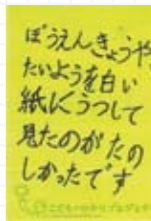 ぼうえんきょうや
たいようを白い
紙にうつして
見たのがたの
しかったです